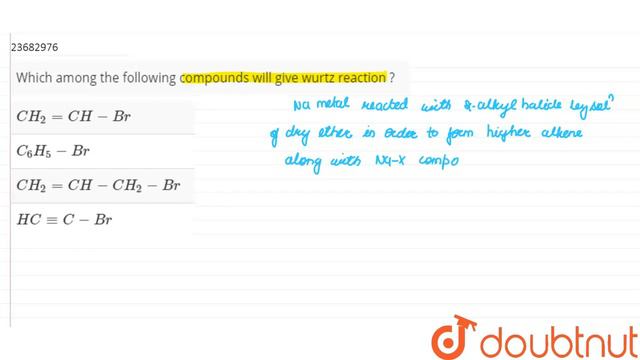 23682976
Which among the following compounds will give wurtz reaction ?
CH₂ = CH − Br
C₆H₅ − Br
CH₂ = CH − CH₂ − Br
HC ≡ C − Br
Na metal reacted with alkyl halide
of dry ether in order to form higher alkene
along with Na-X compo
doubtnut